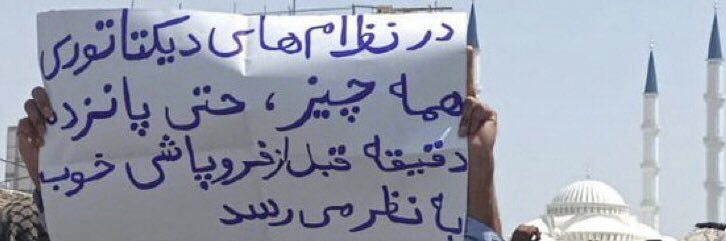 در نظام‌های دیکتاتوری
همه چیز، حتی پانزده
دقیقه قبل از فروپاشی خوب
به نظر می رسد